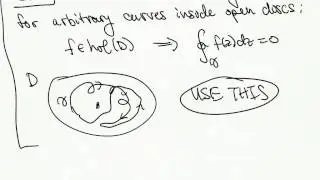 for arbitrary curves inside open discs:
f∈hol(D) ⟹ ∮_γ f(z)dz=0
D
γ
USE THIS